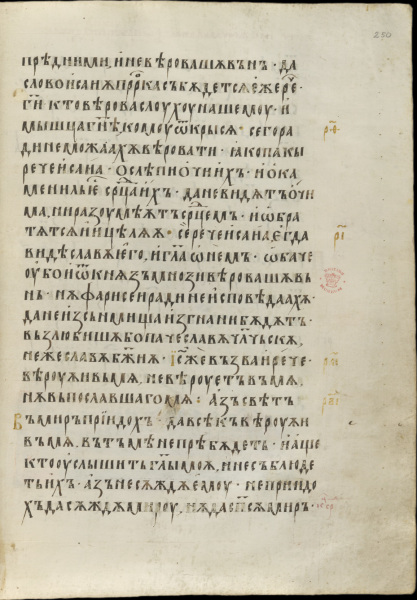 прѣд ними, и не вѣровашѫ вънь · да
слово исаиѧ прⷪ҇рка съ бѫдетсѧ еже реⷱ҇ ·
г҃и кто вѣрова слоухоу нашемоу · и
мышца гн҃ѣ комоу ѿкрысѧ · сего ра
ди не можаахѫ вѣровати · ꙗко пакы
рече исаиа · ослѣпи ѻчи ихъ · и ока
менилъ є срⷣца ихъ · да не видѧтъ очи
ма, ни разоумѣѫтъ срⷣцемь · и ѡбра
тѧтсѧ и ицѣлѧѫ · сѐ рече исаиа егда
видѣ славѫ его, и гл҃а ѡ немъ · ѡбаче
оубо и ѿ кнѧзь мнози вѣровашѫ въ
нь · нѫ фарисеи ради не исповѣдаахѫ
да не из съньмища изгнани бѫдѫтъ ·
възлюбишѫ бо паче славѫ чл҃чьскѫ,
неже славѫ бж҃иѫ · І҃с же възва и рече ·
вѣроуѫи въ мѧ, не вѣроуетъ въ мѧ,
нѫ въ пославшаго мѧ : азъ свѣтъ
въ миръ прїидохъ · да всѣкъ вѣроуѫи
въ мѧ, въ тъмѣ не прѣбѫдетъ · и аще
кто оуслышитъ гл҃ы моѫ, и не съблюде
тъ ихъ · азъ не сѫждѫ емоу · не приидо
хъ да сѫждѫ мироу, нѫ да сп҃сѫ миръ ·